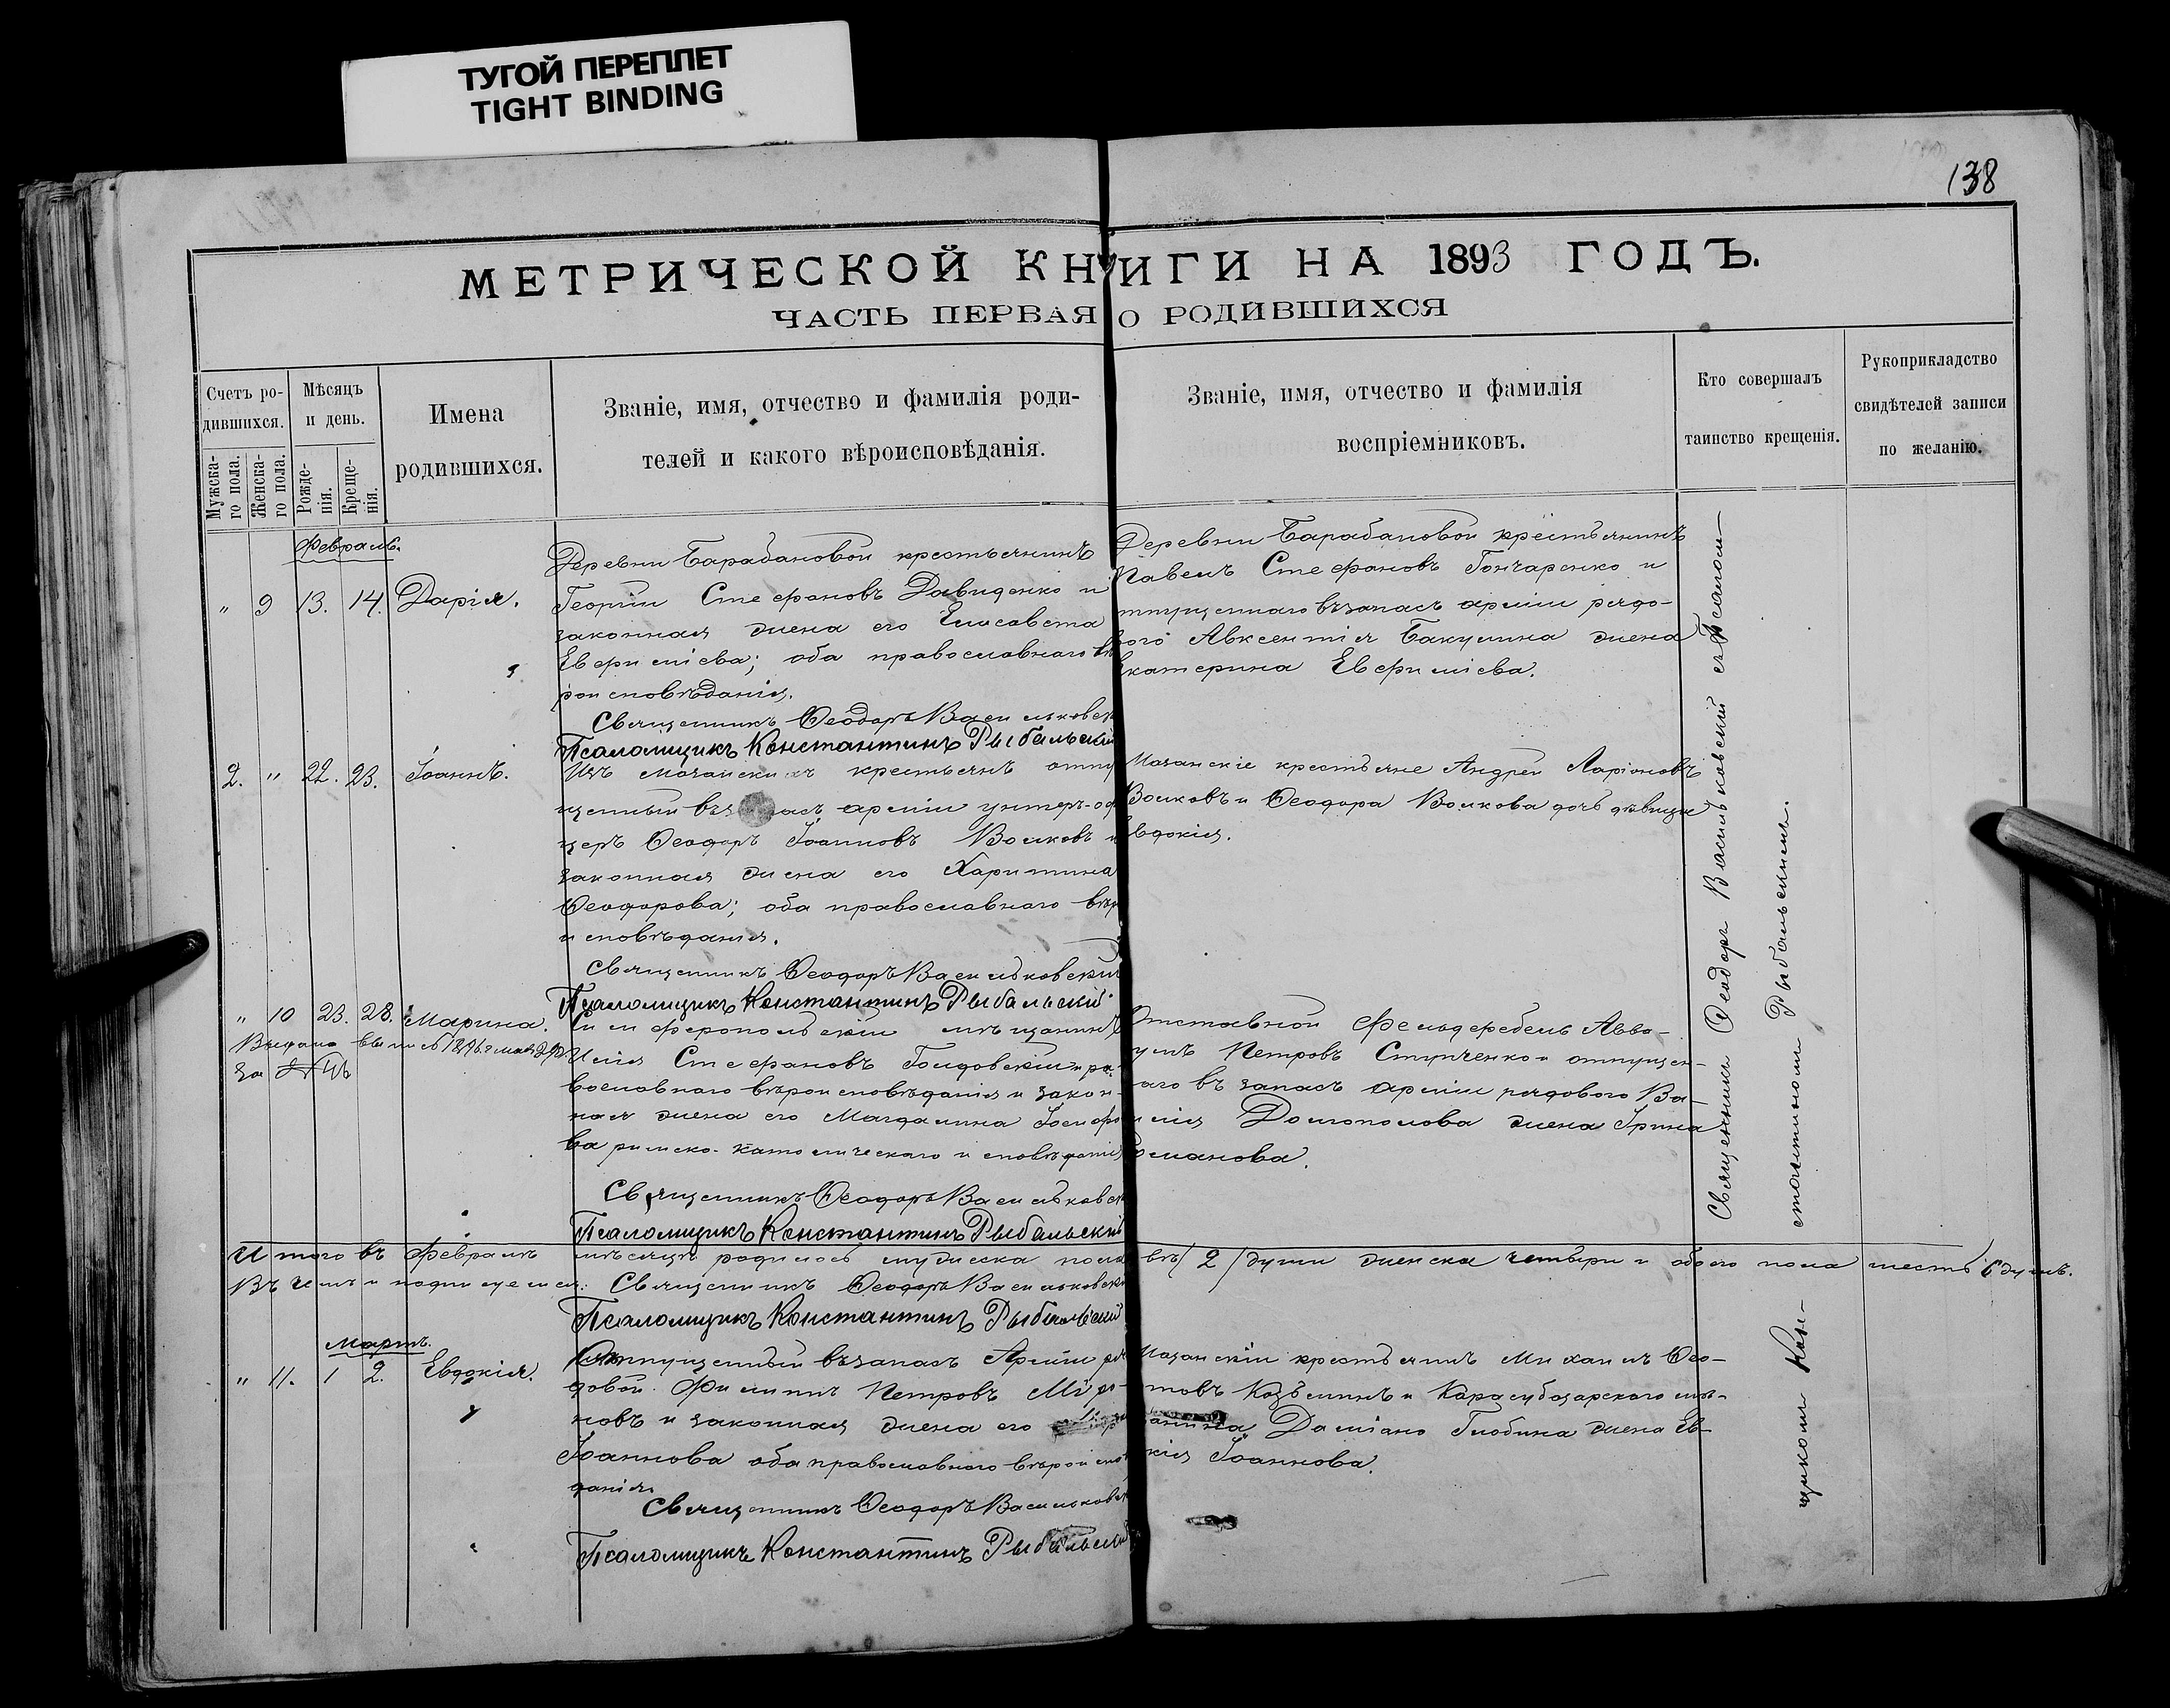 ТУГОЙ ПЕРЕПЛЕТ
TIGHT BINDING
138
МЕТРИЧЕСКОЙ КНИГИ НА 1893 ГОДЪ.
ЧАСТЬ ПЕРВАЯ О РОДИВШИХСЯ
Счетъ ро-
дившихся.
Мужска-
го пола.
Женска-
го пола.
Мѣсяцъ
и день.
Рожде-
нія.
Креще-
нія.
Имена
родившихся.
Званіе, имя, отчество и фамилія роди-
телей и какого вѣроисповѣданія.
Званіе, имя, отчество и фамилія
воспріемниковъ.
Кто совершалъ
таинство крещенія.
Рукоприкладство
свидѣтелей записи
по желанію.
Февраль.
" 9 13. 14. Дарія.
Деревни Барабановой крестьянинъ
Георгій Стефановъ Давиденко и
законная жена его Елисавета
Евфиміева; оба православнаго вѣ
роисповѣданія.
Священникъ Ѳеодоръ Васильковск
Псаломщикъ Константинъ Рыбальскій
Деревни Барабановой крестьянинъ
Павелъ Стефановъ Гончаренко и
отпущеннаго въ запасъ арміи рядо-
вого Авксентія Бакулина жена
Екатерина Евфиміева.
2. " 22. 23. Іоаннъ.
Изъ мазанскихъ крестьянъ отпу
щенный въ запасъ арміи унтеръ-оф
церъ Ѳеодоръ Іоанновъ Волковъ и
законная жена его Харитина
Ѳеодорова; оба православнаго вѣр
исповѣданія.
Священникъ Ѳеодоръ Васильковскій
Псаломщикъ Константинъ Рыбальскій
Мазанскіе крестьяне Андрей Ларіоновъ
Волковъ и Ѳеодора Волкова дочь дѣвица
Евдокія.
" 10 23. 28. Марина.
Выдано выпись 1896 г мая
за №
Симферопольскій мѣщанинъ
Илія Стефановъ Голдовскій пра-
вославнаго вѣроисповѣданія и закон-
ная жена его Магдалина Іосифо
ва римско-католическаго исповѣданія
Священникъ Ѳеодоръ Васильковск
Псаломщикъ Константинъ Рыбальскій
Отставной фельдфебель Авва-
умъ Петровъ Ступченко и отпущен-
аго въ запасъ арміи рядового Ва-
илія Долгополова жена Ирина
Романова.
Итого въ Февралѣ мѣсяцѣ родилось мужеска пола двѣ / 2 / души женска четыри и обоего пола шесть 6 душъ.
Въ чемъ и подписуемся: Священникъ Ѳеодоръ Васильковскі
Псаломщикъ Константинъ Рыбальскій
Мартъ.
" 11. 1 2. Евдокія.
Отпущенный въ запасъ Арміи ря
довой Филиппъ Петровъ
новъ и законная жена его
Іоаннова оба православнаго вѣроиспо
данія.
Священникъ Ѳеодоръ Васильковск
Псаломщикъ Константинъ Рыбальскій
Мазанскій крестьянинъ Михаилъ Ѳео-
товъ Козьминъ и Карасубазарскаго мѣ-
щанина Даміана Глобина жена Ев-
кія Іоаннова.
Священникъ Ѳеодоръ Васильковскій съ Псалом-
щикомъ Кон-
стантиномъ Рыбальскимъ.